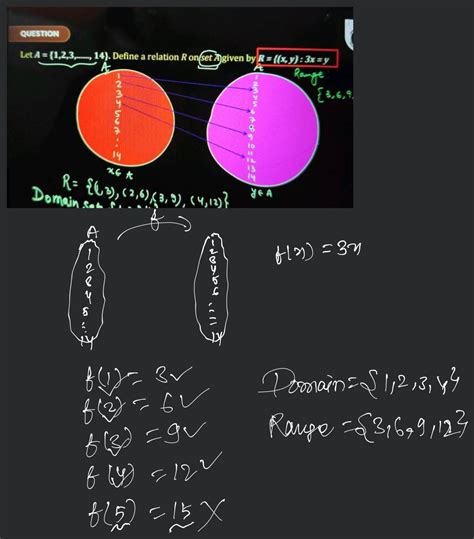 QUESTION
Let A = {1,2,3,...., 14}. Define a relation R on set A given by R = {(x, y) : 3x = y
A
A
Range
{3,6,9,
1
2
3
4
5
6
7
:
14
1
2
3
4
5
6
7
8
9
10
11
12
13
14
x∈A
y∈A
R = {(1,3), (2,6), (3,9), (4,12)}
Domain set
A
f
1
2
3
4
5
:
14
1
2
3
4
5
6
:
14
f(x) = 3x
f(1) = 3✓
f(2) = 6✓
f(3) = 9✓
f(4) = 12✓
f(5) = 15 X
Domain = {1,2,3,4}
Range = {3,6,9,12}